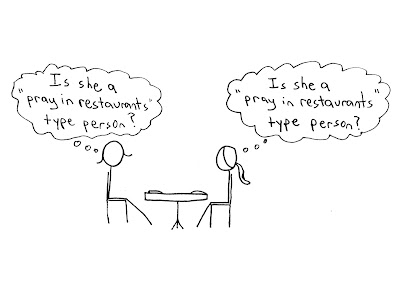 Is she a
"pray in restaurants"
type person?
Is she a
"pray in restaurants"
type person?